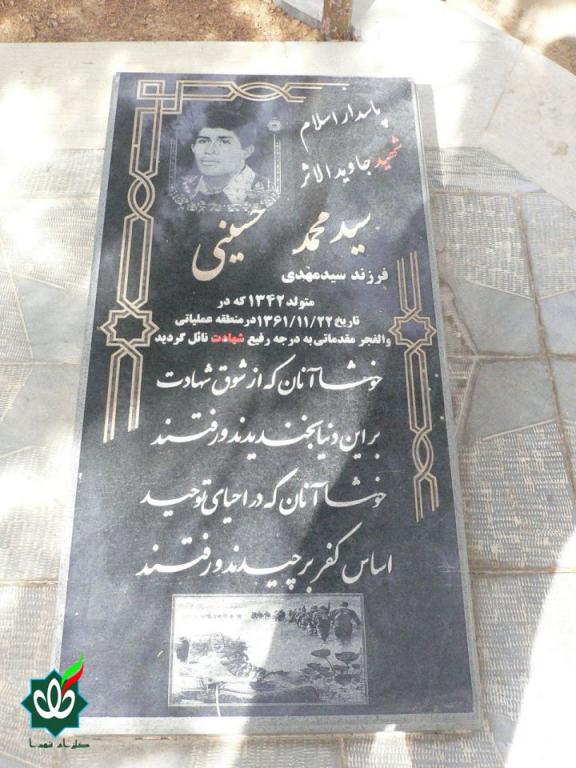 پاسدار اسلام
شهید جاوید الاثر
سید محمد حسینی
فرزند سیدمهدی
متولد ۱۳۴۲ که در
تاریخ ۱۳۶۱/۱۱/۲۲ در منطقه عملیاتی
والفجر مقدماتی به درجه رفیع شهادت نائل گردید
خوشا آنان که از شوق شهادت
بر این دنیا بخندیدند و رفتند
خوشا آنان که در احیای توحید
اساس کفر برچیدند و رفتند
گلزار شهدا